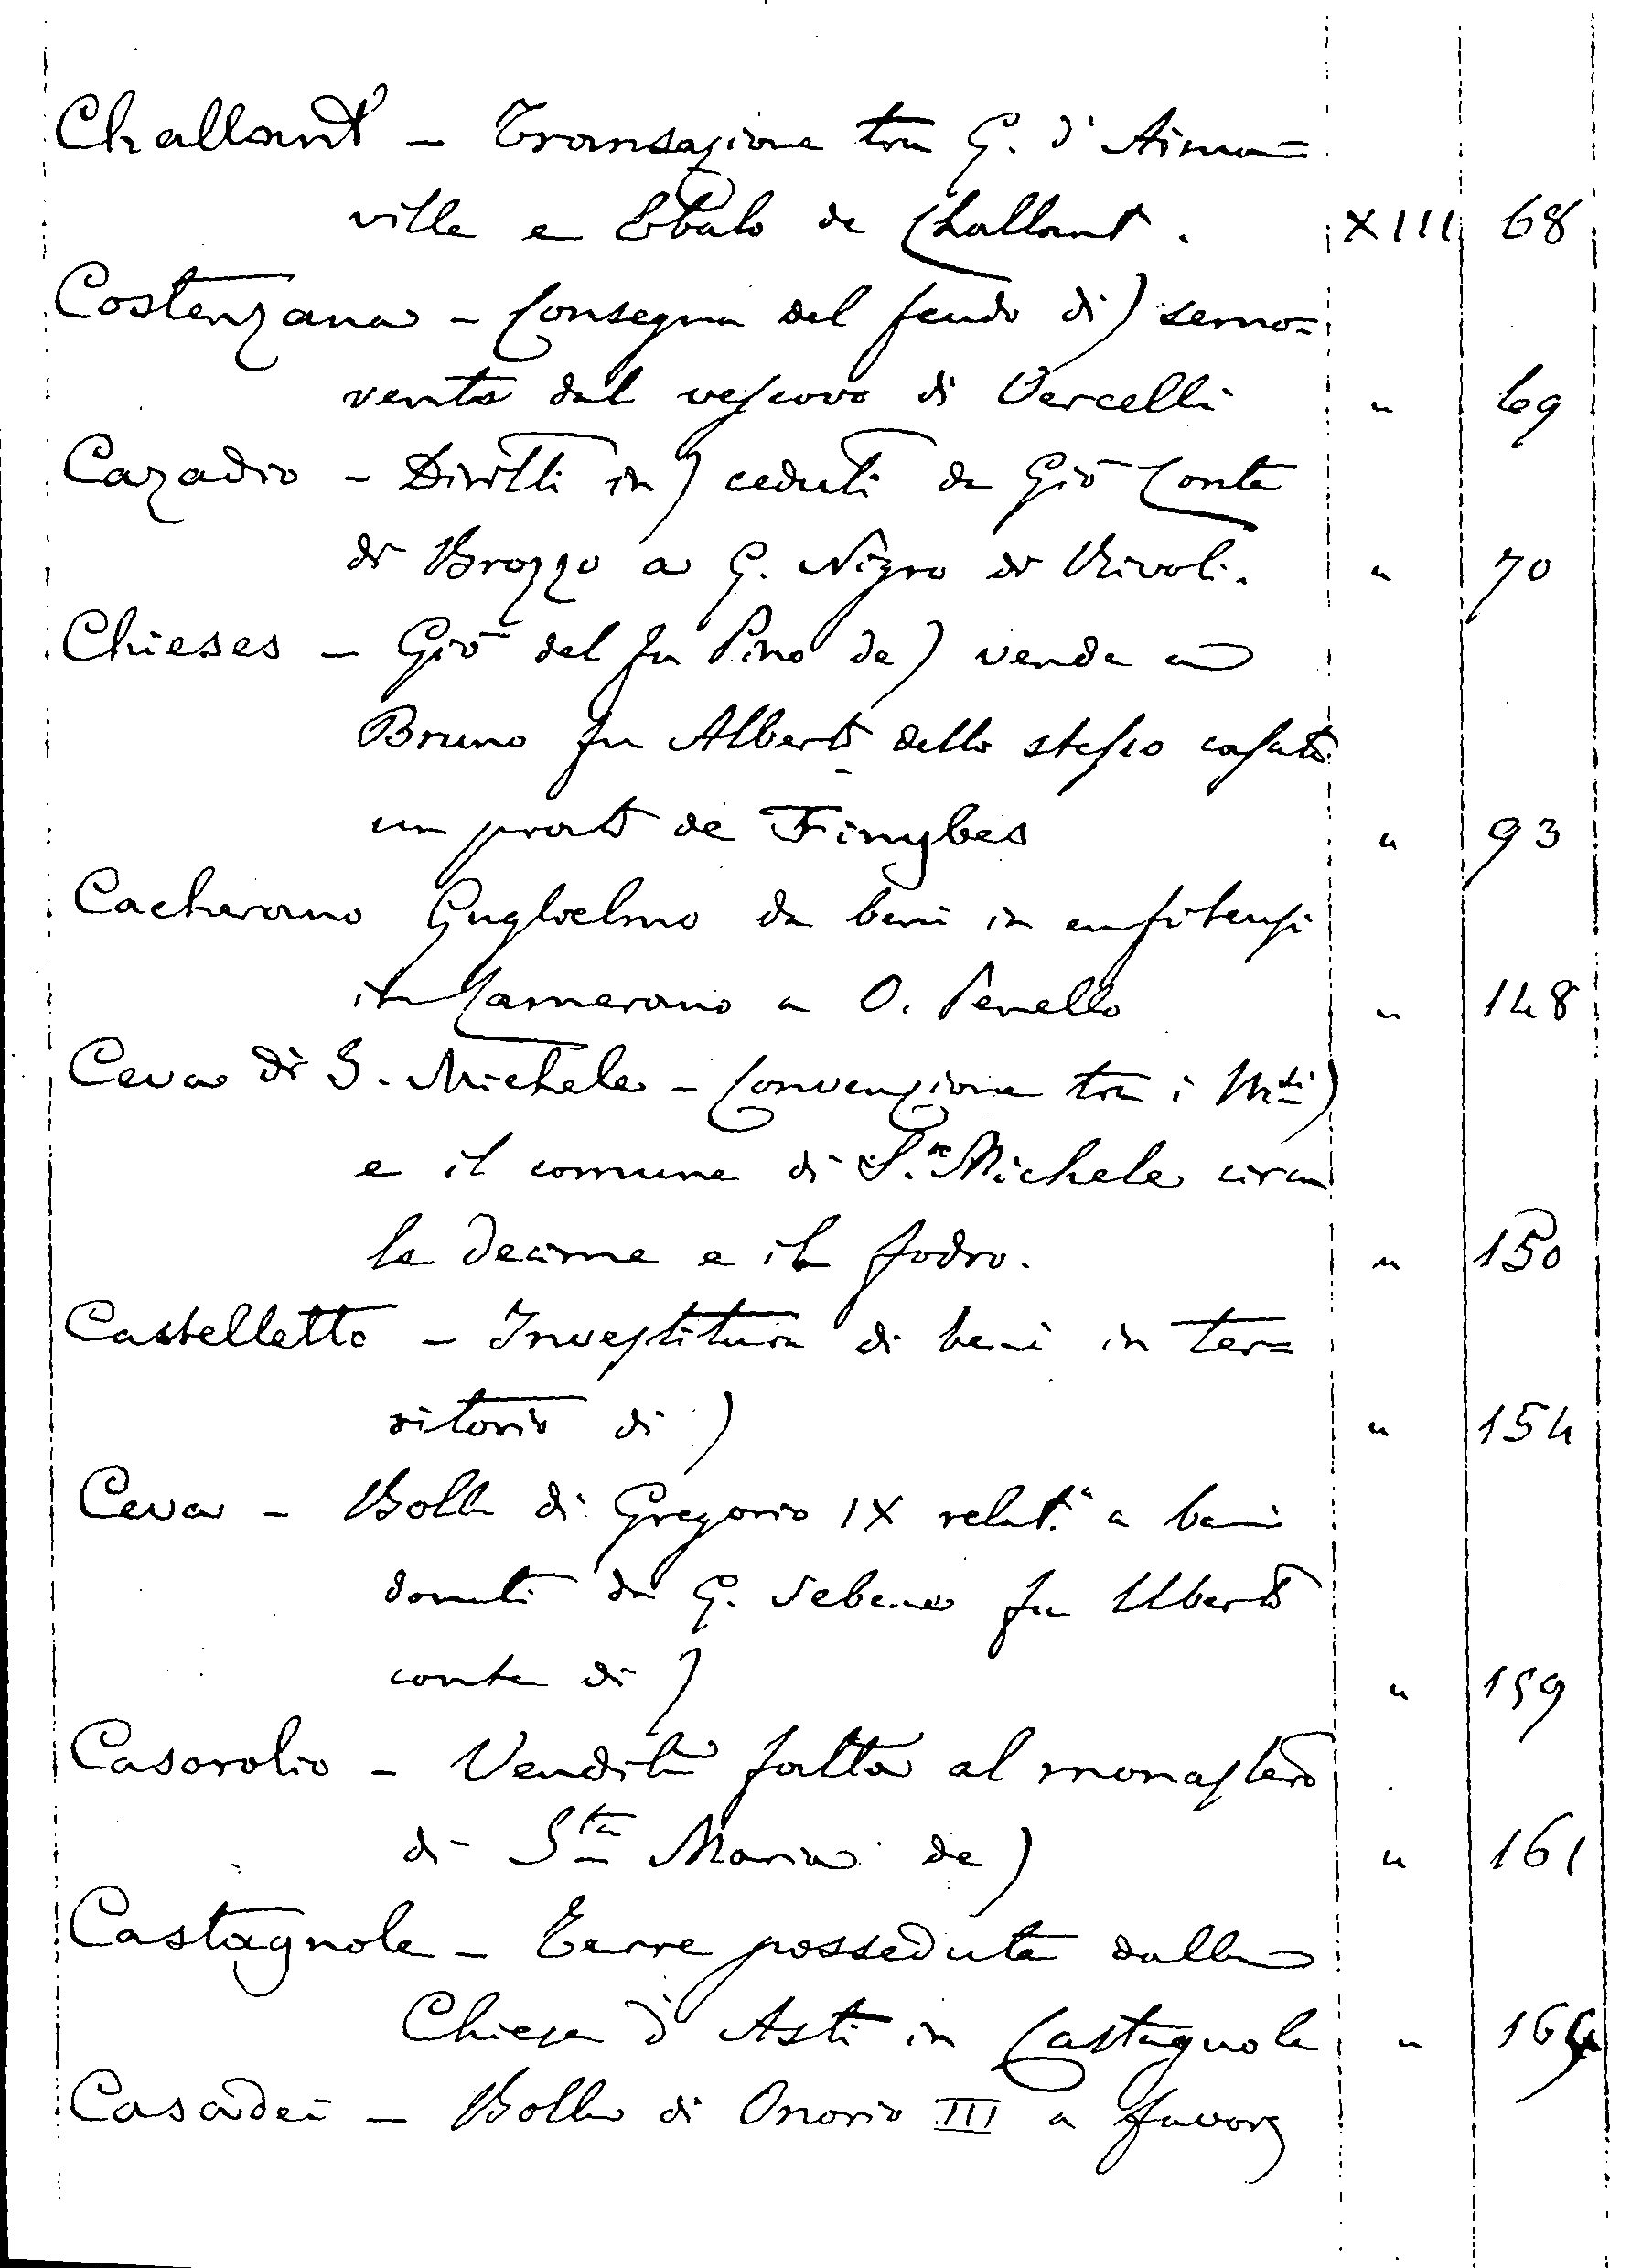 Challant - Transazione tra G. d'Aima=
ville e Ebalo de Challant. XIII 68
Costanzana - Consegna del feudo di) semo=
vente dal vescovo di Vercelli " 69
Cazadio - Diritti in) ceduti da Giò Conte
di Brozzo a G. Nigro di Rivoli. " 70
Chieses - Giò del fu Pino de) vende a
Bruno fu Alberto dello stesso casato
un prato de Finybes " 93
Cacherano Guglielmo da beni in enfiteusi
in Camerano a O. Penello " 148
Ceva di S. Michele - Convenzione tra i M.si)
e il comune di S. Michele circa
le decime e il fodro. " 150
Castelletto - Investitura di beni in ter=
ritorio di) " 154
Ceva - Bolla di Gregorio IX relat.a a beni
donati da G. Sebene fu Uberto
conte di) " 159
Casorolio - Vendita fatta al monastero
di Sta Maria de) " 161
Castagnole - Terre possedute dalla
Chiesa d'Asti in Castagnole " 164
Casadei - Bolla di Onorio III a favore